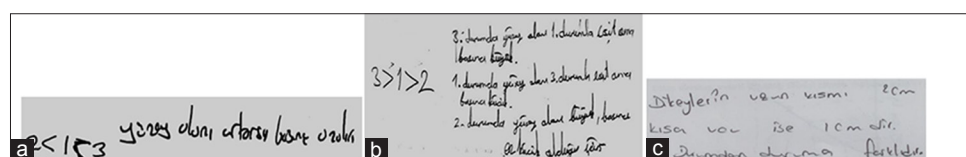 a
2<1<3 yüzey alanı artarsa basınç azalır
b
3>1>2
3. durumda yüzey alanı 1. durumla eşit ama
basıncı büyük.
1. durumda yüzey alanı 3. durumla eşit ama
basıncı küçük.
2. durumda yüzey alanı büyük, basıncı
küçük olduğu için
c
Dikeylerin uzun kısmı 2cm
kısa ise 1cm dir.
Durumdan duruma farklıdır.